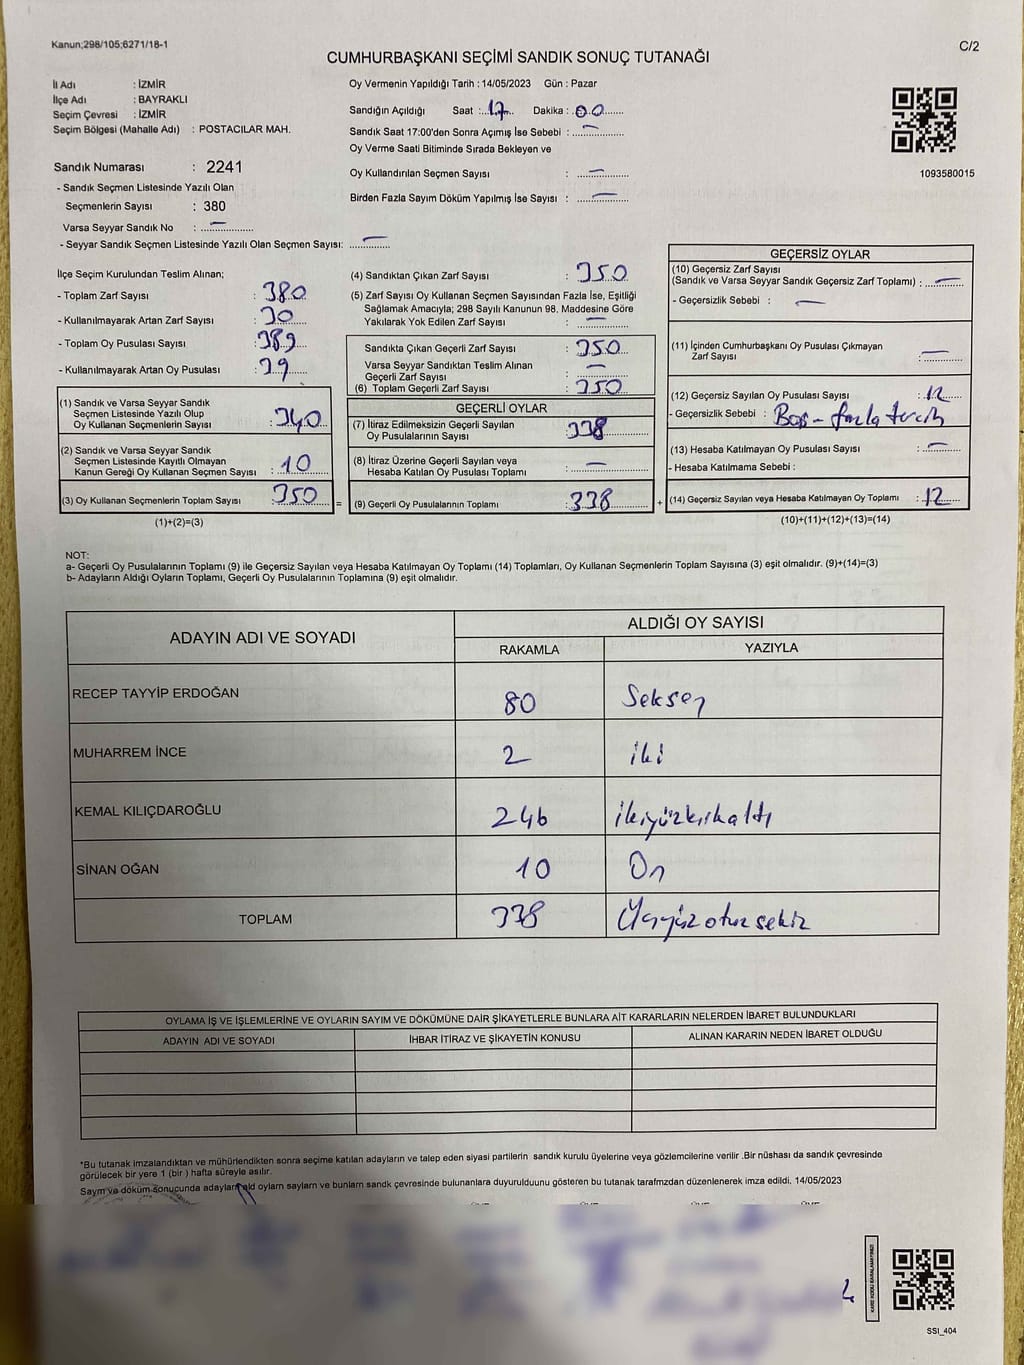 Kanun;298/105;6271/18-1
C/2
CUMHURBAŞKANI SEÇİMİ SANDIK SONUÇ TUTANAĞI
İl Adı : İZMİR
İlçe Adı : BAYRAKLI
Seçim Çevresi : İZMİR
Seçim Bölgesi (Mahalle Adı) : POSTACILAR MAH.
Sandık Numarası : 2241
- Sandık Seçmen Listesinde Yazılı Olan
Seçmenlerin Sayısı : 380
Varsa Seyyar Sandık No : —
- Seyyar Sandık Seçmen Listesinde Yazılı Olan Seçmen Sayısı: —
Oy Vermenin Yapıldığı Tarih : 14/05/2023 Gün : Pazar
Sandığın Açıldığı Saat : 17 Dakika : 00
Sandık Saat 17:00'den Sonra Açımış İse Sebebi : —
Oy Verme Saati Bitiminde Sırada Bekleyen ve
Oy Kullandırılan Seçmen Sayısı : —
Birden Fazla Sayım Döküm Yapılmış İse Sayısı : —
1093580015
İlçe Seçim Kurulundan Teslim Alınan;
- Toplam Zarf Sayısı : 380
- Kullanılmayarak Artan Zarf Sayısı : 30
- Toplam Oy Pusulası Sayısı : 389
- Kullanılmayarak Artan Oy Pusulası : 39
(1) Sandık ve Varsa Seyyar Sandık
Seçmen Listesinde Yazılı Olup
Oy Kullanan Seçmenlerin Sayısı : 340
(2) Sandık ve Varsa Seyyar Sandık
Seçmen Listesinde Kayıtlı Olmayan
Kanun Gereği Oy Kullanan Seçmen Sayısı : 10
(3) Oy Kullanan Seçmenlerin Toplam Sayısı : 350 =
(1)+(2)=(3)
(4) Sandıktan Çıkan Zarf Sayısı : 350
(5) Zarf Sayısı Oy Kullanan Seçmen Sayısından Fazla İse, Eşitliği
Sağlamak Amacıyla; 298 Sayılı Kanunun 98. Maddesine Göre
Yakılarak Yok Edilen Zarf Sayısı : —
Sandıkta Çıkan Geçerli Zarf Sayısı : 350
Varsa Seyyar Sandıktan Teslim Alınan
Geçerli Zarf Sayısı : —
(6) Toplam Geçerli Zarf Sayısı : 350
GEÇERLİ OYLAR
(7) İtiraz Edilmeksizin Geçerli Sayılan
Oy Pusulalarının Sayısı : 338
(8) İtiraz Üzerine Geçerli Sayılan veya
Hesaba Katılan Oy Pusulası Toplamı : —
(9) Geçerli Oy Pusulalarının Toplamı : 338 +
GEÇERSİZ OYLAR
(10) Geçersiz Zarf Sayısı
(Sandık ve Varsa Seyyar Sandık Geçersiz Zarf Toplamı) : —
- Geçersizlik Sebebi : —
(11) İçinden Cumhurbaşkanı Oy Pusulası Çıkmayan
Zarf Sayısı : —
(12) Geçersiz Sayılan Oy Pusulası Sayısı : 12
- Geçersizlik Sebebi : Boş - fazla tercih
(13) Hesaba Katılmayan Oy Pusulası Sayısı : —
- Hesaba Katılmama Sebebi :
(14) Geçersiz Sayılan veya Hesaba Katılmayan Oy Toplamı : 12
(10)+(11)+(12)+(13)=(14)
NOT:
a- Geçerli Oy Pusulalarının Toplamı (9) ile Geçersiz Sayılan veya Hesaba Katılmayan Oy Toplamı (14) Toplamları, Oy Kullanan Seçmenlerin Toplam Sayısına (3) eşit olmalıdır. (9)+(14)=(3)
b- Adayların Aldığı Oyların Toplamı, Geçerli Oy Pusulalarının Toplamına (9) eşit olmalıdır.
ADAYIN ADI VE SOYADI
ALDIĞI OY SAYISI
RAKAMLA YAZIYLA
RECEP TAYYİP ERDOĞAN 80 Seksen
MUHARREM İNCE 2 iki
KEMAL KILIÇDAROĞLU 246 ikiyüzkırkaltı
SİNAN OĞAN 10 On
TOPLAM 338 Üçyüzotuzsekiz
OYLAMA İŞ VE İŞLEMLERİNE VE OYLARIN SAYIM VE DÖKÜMÜNE DAİR ŞİKAYETLERLE BUNLARA AİT KARARLARIN NELERDEN İBARET BULUNDUKLARI
ADAYIN ADI VE SOYADI İHBAR İTİRAZ VE ŞİKAYETİN KONUSU ALINAN KARARIN NEDEN İBARET OLDUĞU
*Bu tutanak imzalandıktan ve mühürlendikten sonra seçime katılan adayların ve talep eden siyasi partilerin sandık kurulu üyelerine veya gözlemcilerine verilir .Bir nüshası da sandık çevresinde
görülecek bir yere 1 (bir ) hafta süreyle asılır.
Sayım ve döküm sonucunda adayların oyların sayların ve bunların sandık çevresinde bulunanlara duyurulduunu gösteren bu tutanak tarafmzdan düzenlenerek imza edildi. 14/05/2023
SSI_404